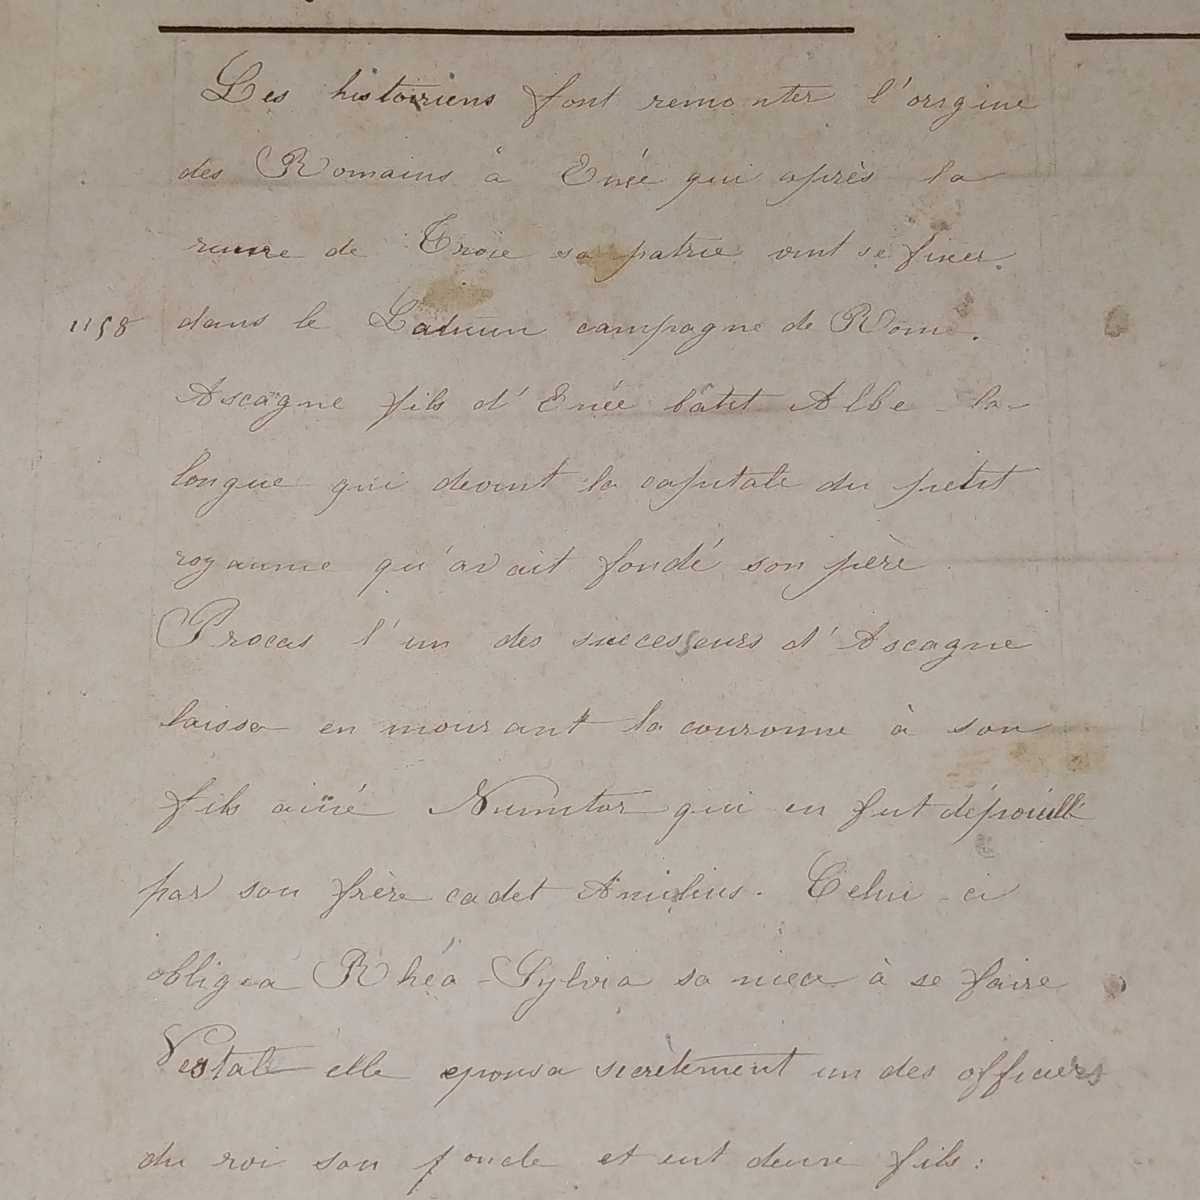 Les historiens font remonter l'origine
des Romains à Enée qui après la
ruine de Troie sa patrie vint se fixer
1158 dans le Latium campagne de Rome.
Ascagne fils d'Enée bâtit Albe-la-
longue qui devint la capitale du petit
royaume qu'avait fondé son père
Procas l'un des successeurs d'Ascagne
laissa en mourant la couronne à son
fils aîné Numitor qui en fut dépouillé
par son frère cadet Amulius. Celui-ci
obligea Rhéa-Sylvia sa nièce à se faire
Vestale elle épousa secrètement un des officiers
du roi son oncle et eut deux fils: